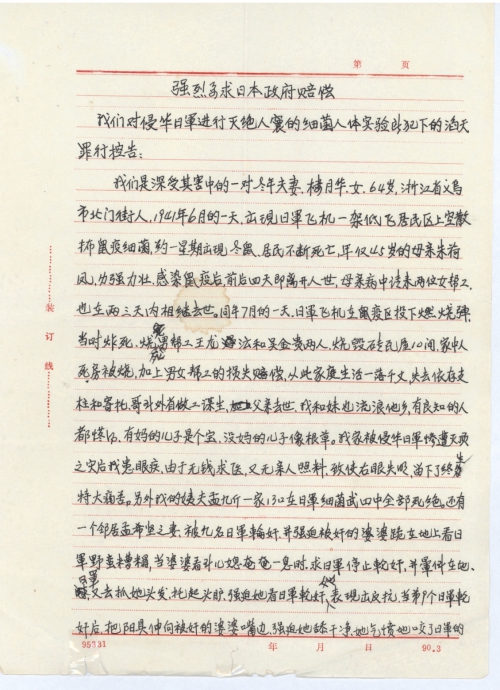 第 页
强烈要求日本政府赔偿
我们对侵华日軍进行灭绝人寰的细菌人体实验所犯下的滔天
罪行控告:
我们是深受其害中的一对老年夫妻,楼月华,女,64岁,浙江省义乌
市北门街人,1941年6月的一天,出现日軍飞机一架低飞居民区上空散
布鼠疫细菌,约一星期出现死鼠,居民不断死亡,年仅45岁的母亲朱荷
凤,力强力壮,感染鼠疫后,前后四天即离开人世,母亲病中请来两位女帮工
也在两三天内相继去世。同年7月的一天,日軍飞机在鼠疫区投下燃烧弹,
当时炸死,烧死男帮工王龙法和吴金贵两人,烧毁砖瓦屋10间,家中人
死房被烧,加上男女帮工的损失赔偿,从此家庭生活一落千丈,失去依存支
柱和寄托,哥斗外省做工谋生,父亲去世,我和妹也流浪他乡,有良知的人
都懂得,有妈的儿子是个宝,没妈的儿子像根草。我家被侵华日軍惨遭灭顶
之灾后我患眼疾,由于无钱求医,又无亲人照料,致使右眼失明,留下了终生
特大痛苦。另外我的姨夫孟九斤一家13口在日軍细菌武四中全部死绝。还有
一个邻居孟希坚之妻,被九名日軍輪奸,并强迫被奸的婆婆跪在地上看日
軍野蛮糟榻,当婆婆看到儿媳奄奄一息时,求日軍停止輪奸,并晕倒在地、
日軍又去抓她头发,托起头颅,强迫她看日軍輪奸,表现出反抗,当第9个日軍輪
奸后,把阳具伸向被奸的婆婆嘴边,强迫她舔干净,她气愤地咬了日軍的
装订线
95331 年 月 日 90.3